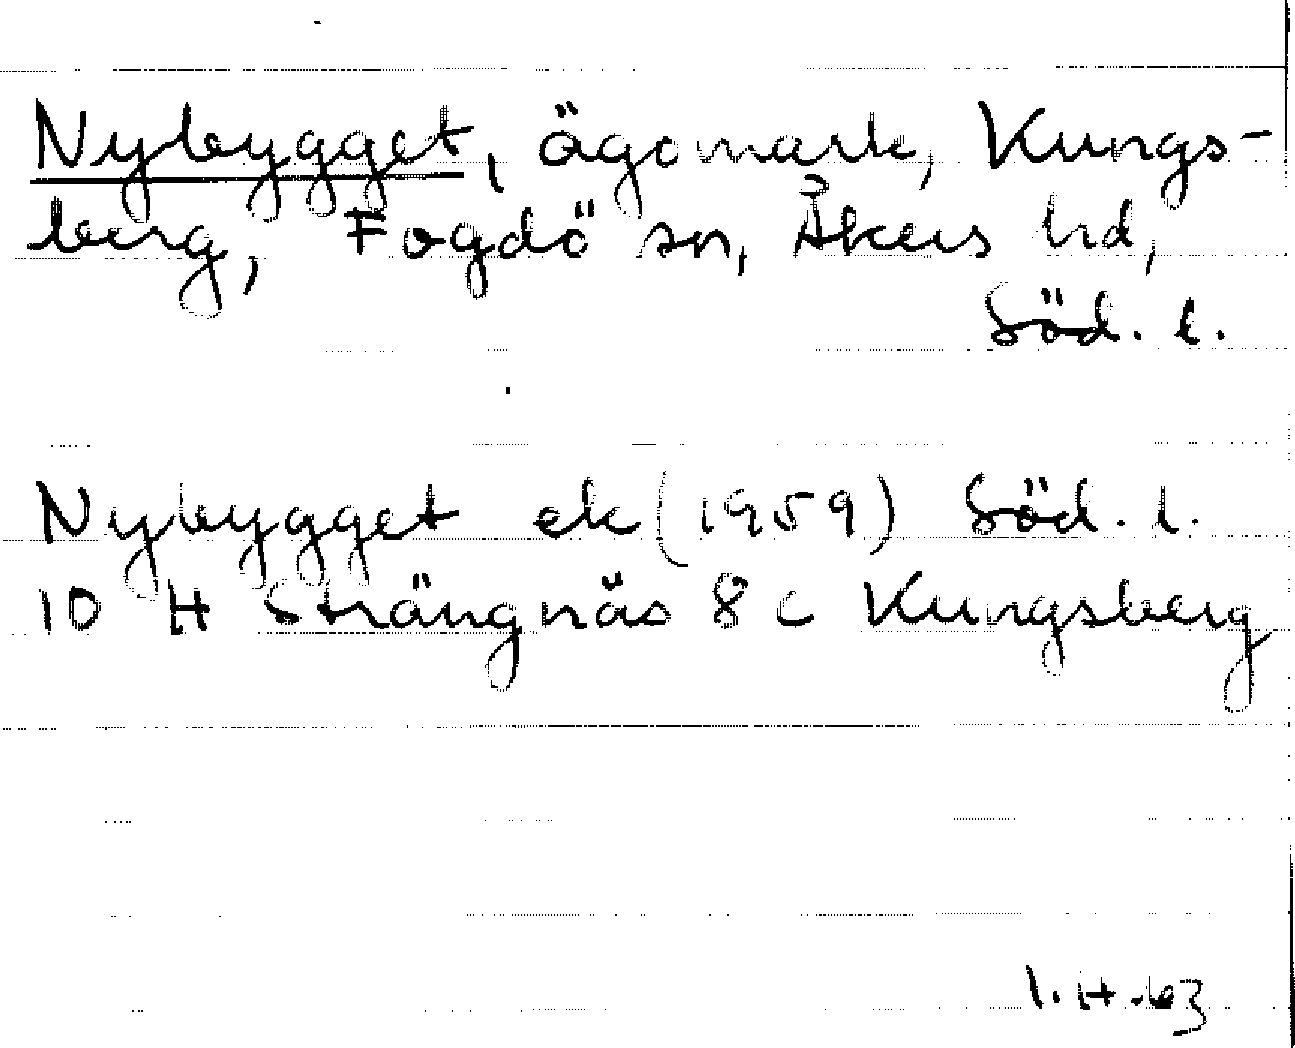 Nybygget, ägomark, Kungs-
berg, Fogdö sn, Åkers hd,
Söd. l.
Nybygget ek (1959) Söd. l.
10 H Strängnäs 8 c Kungsberg
I.H. 63